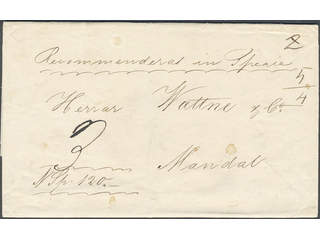 2
Recommanderat in Specie
5/4
Herrar Wattne & Co.
3
Mandal
N Sp 120.—